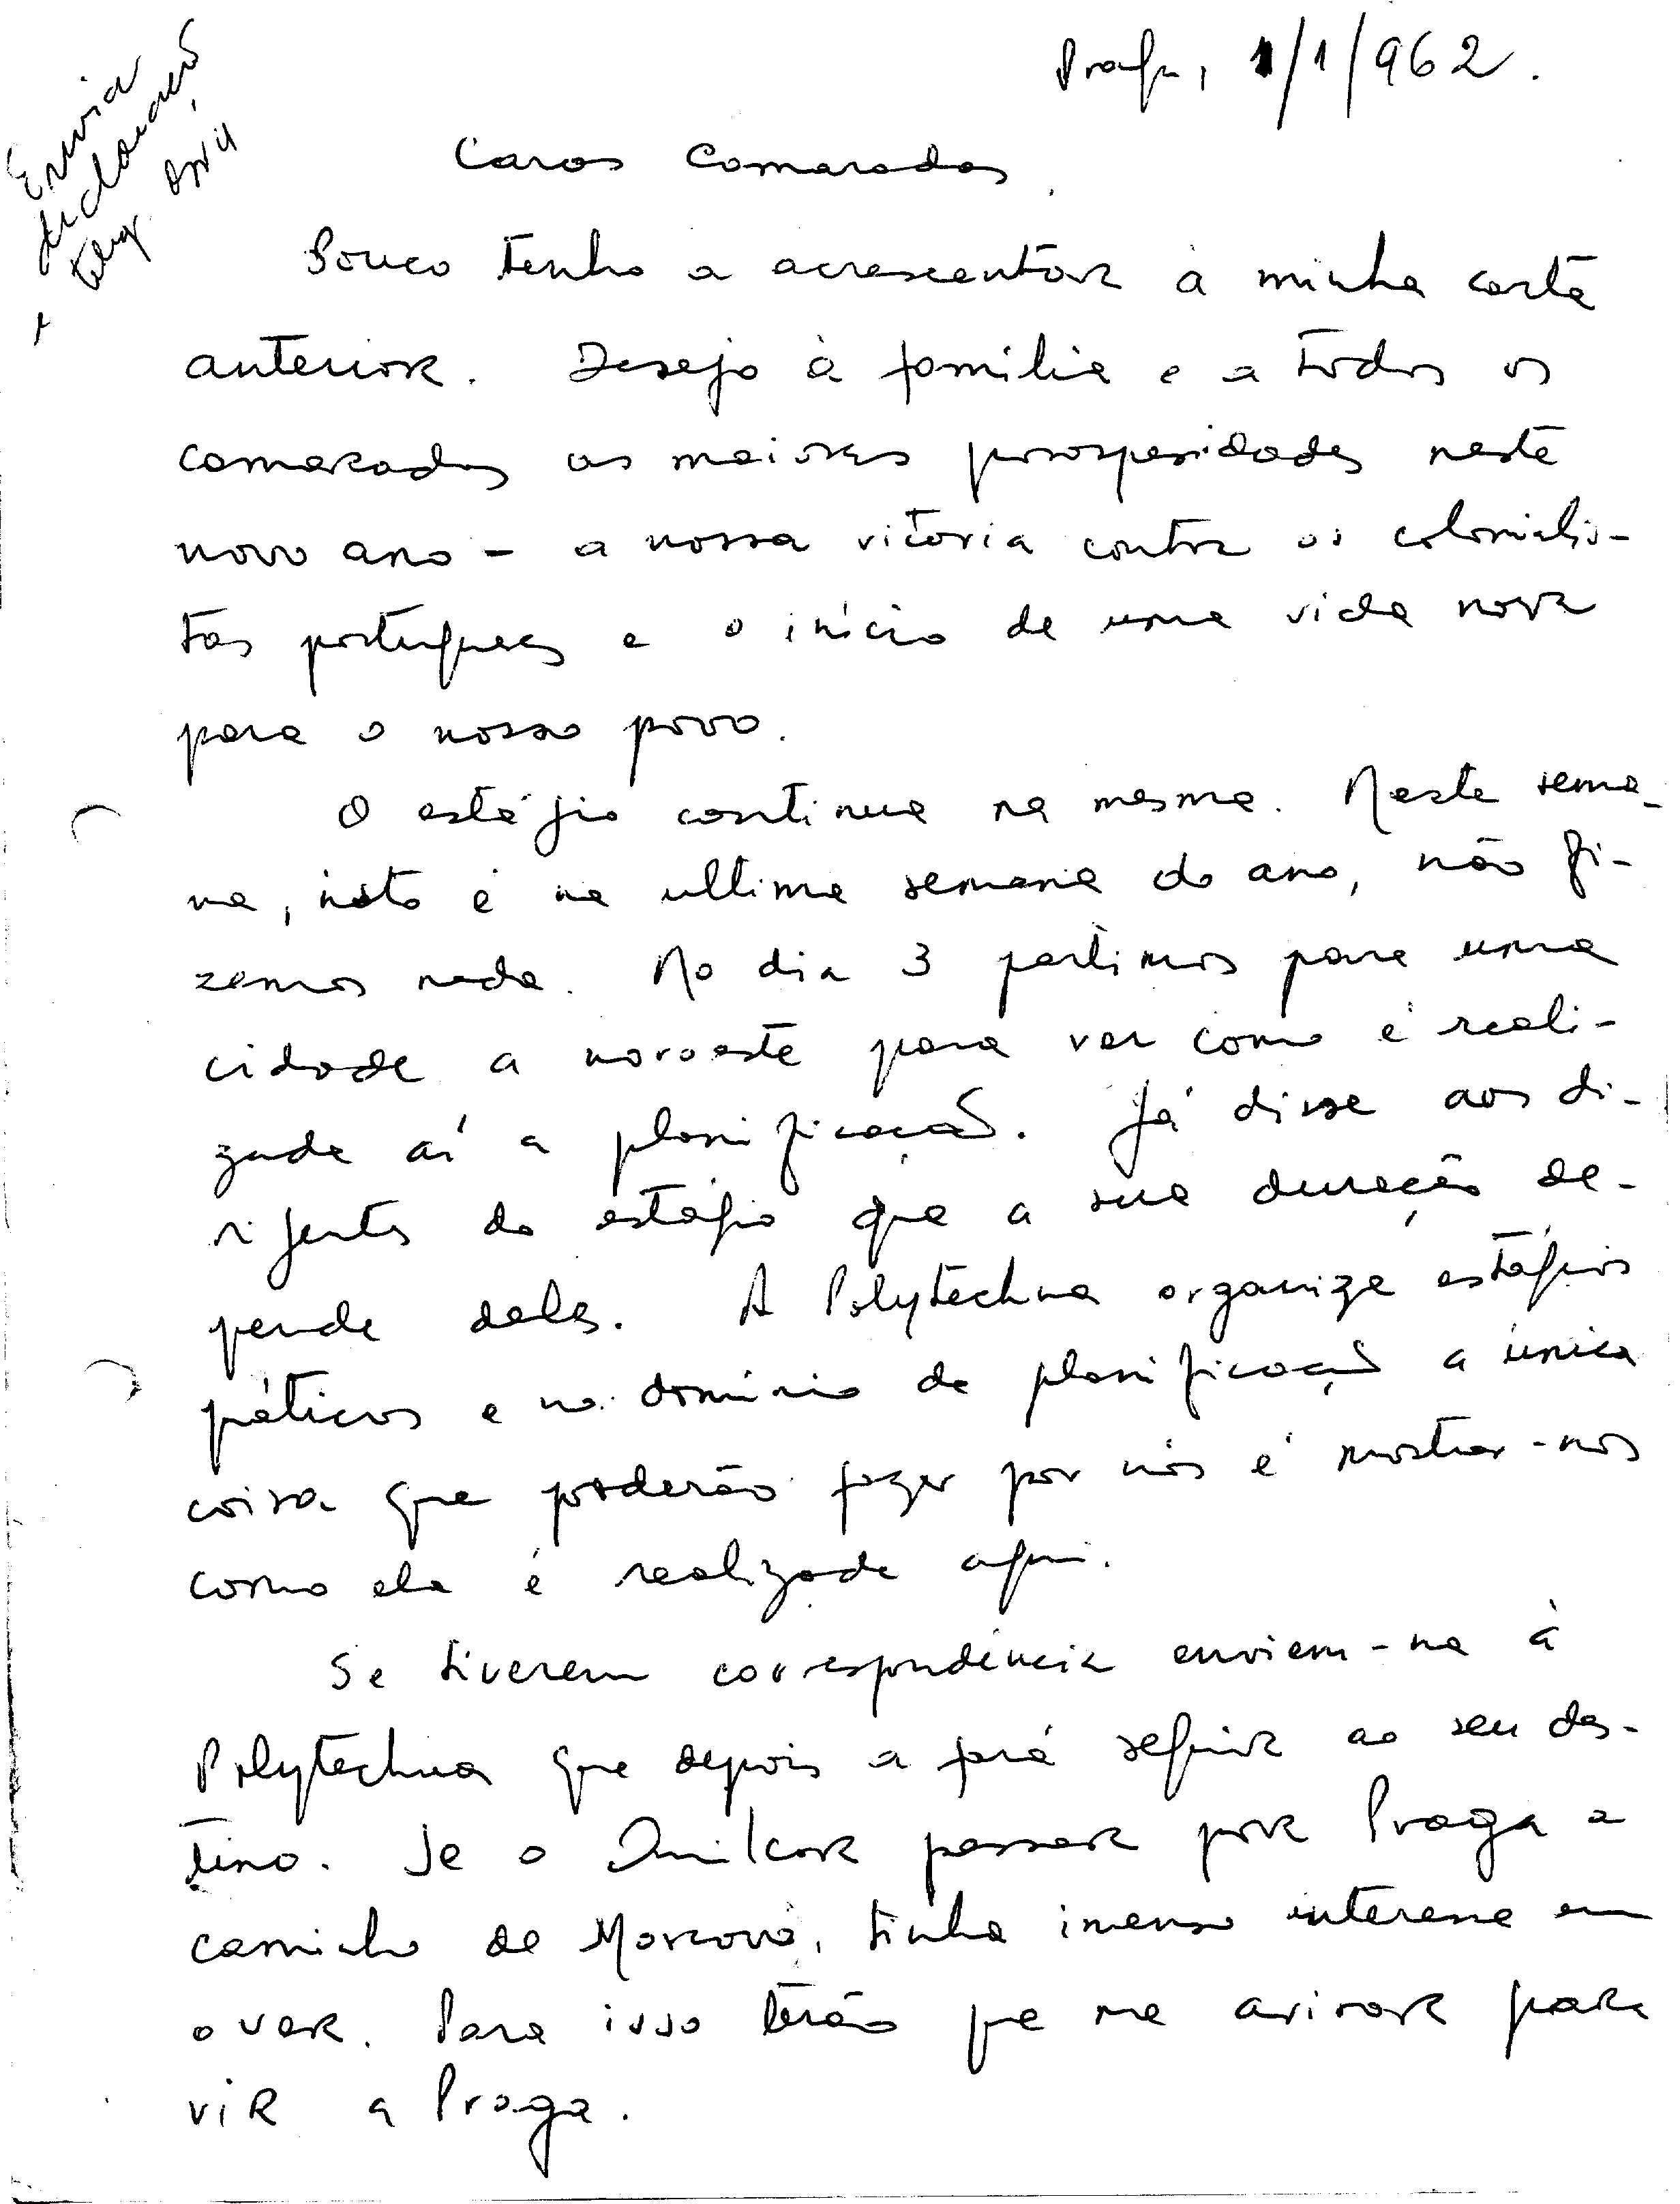 Praga, 1/1/962.
Envia
declaração
e telegr.
Caros Camaradas,
Pouco tenho a acrescentar à minha carta
anterior. Desejo à família e a todos os
camaradas as maiores prosperidades neste
novo ano - a nossa vitoria contra os colonialis-
tas portugueses e o início de uma vida nova
para o nosso povo.
O estágio continua na mesma. Nesta sema-
na, isto é na ultima semana do ano, não fi-
zemos nada. No dia 3 partimos para uma
cidade a noroeste para ver como é reali-
zada aí a planificação. Já disse aos di-
rigentes do estágio que a sua duração de-
pende deles. A Polytechna organiza estágios
práticos e no domínio da planificação a única
coisa que poderão fazer por nós é mostrar-nos
como ela é realizada aqui.
Se tiverem correspondência enviem-na à
Polytechna que depois a fará seguir ao seu des-
tino. Se o Amílcar passar por Praga a
caminho de Moscovo, tinha imenso interesse em
o ver. Para isso terão que me avisar para
vir a Praga.